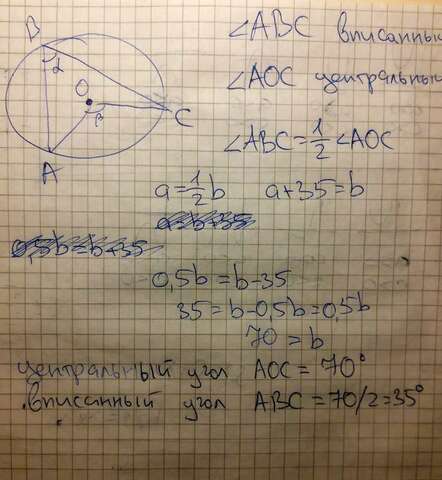 B
O
C
A
α
β
∠ABC вписанный
∠AOC центральный
∠ABC = 1/2 ∠AOC
a = 1/2 b    a+35=b
0,5b = b-35
35 = b-0,5b = 0,5b
70 = b
центральный угол AOC = 70°
вписанный угол ABC = 70/2 = 35°